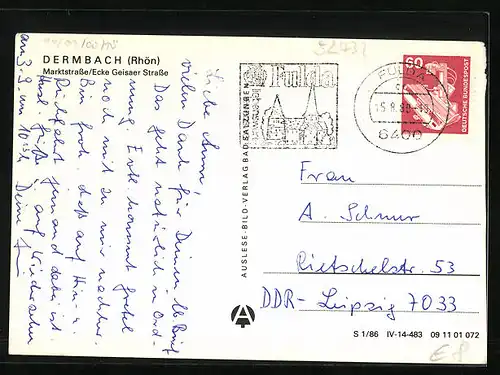 DERMBACH (Rhön)
Marktstraße/Ecke Geisaer Straße
Liebe Anni!
vielen Dank für Deinen lb. Brief
Das geht natürlich in Ord-
nung. Evtl. kommt Gretel
noch mit zu mir nachher.
Bin froh, daß auf Hin- u.
Rückfahrt jemand dabei ist.
Herzl. Grüße u. auf Wiedersehen
am 3.9. um Deine
Fulda
FULDA
6400
60
DEUTSCHE BUNDESPOST
AUSLESE-BILD-VERLAG BAD SALZUNGEN
Frau
A. Schnur
Rietschelstr. 53
DDR- Leipzig 7033
S 1/86 IV-14-483 09 11 01 072